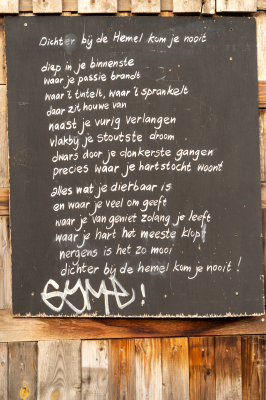 Dichter bij de Hemel kom je nooit
diep in je binnenste
waar je passie brandt
waar 't tintelt, waar 't sprankelt
daar zit houwe van
naast je vurig verlangen
vlakbij je stoutste droom
dwars door je donkerste gangen
precies waar je hartstocht woont
alles wat je dierbaar is
en waar je veel om geeft
waar je van geniet zolang je leeft
waar je hart het meeste klopt
nergens is het zo mooi
dichter bij de hemel kom je nooit !